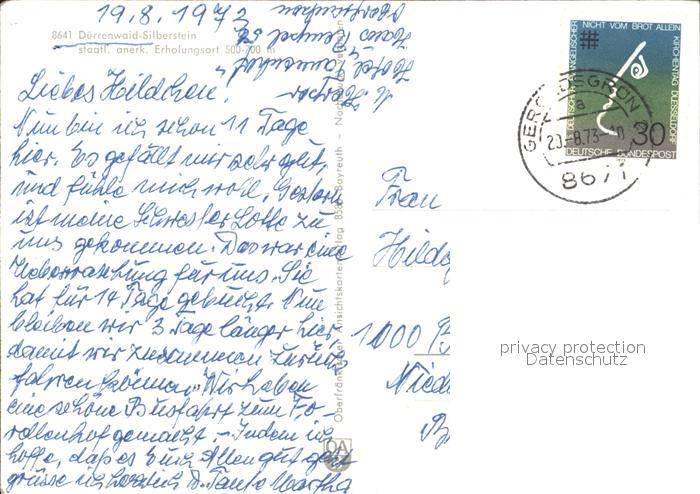 19.8.1973
8641 Dürrenwaid-Silberstein
staatl. anerk. Erholungsort 500-700 m
Liebes Hildchen!
Nun bin ich schon 11 Tage
hier. Es gefällt mir sehr gut,
und fühle mich wohl. Gestern
ist meine Schwester Lotte zu
uns gekommen. Das war eine
Ueberraschung für uns. Sie
hat für 14 Tage gebucht. Nun
bleiben wir 3 Tage länger hier,
damit wir zusammen zurück
fahren können. Wir haben
eine schöne Busfahrt zum Fo-
rellenhof gemacht. – Indem ich
hoffe, daß es Euch Allen gut geht
grüsse ich herzlich D. Tante Martha
Oberfränkischer Ansichtskartenverlag 8580 Bayreuth - Nachdruck verboten
DEUTSCHER EVANGELISCHER KIRCHENTAG DUESSELDORF
NICHT VOM BROT ALLEIN
30
DEUTSCHE BUNDESPOST
GEROLDSGRÜN
a
20.-8.73
8671
Frau
1000
privacy protection
Datenschutz